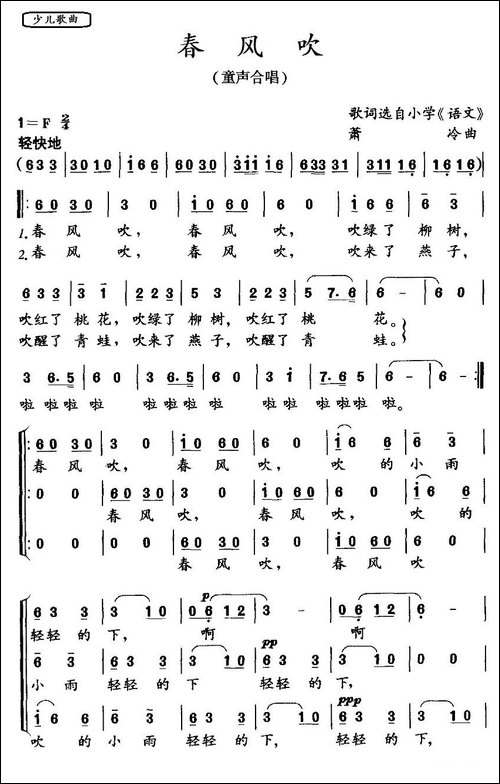 少儿歌曲
春风吹
(童声合唱)
1=F 2/4
歌词选自小学《语文》
轻快地
萧 冷曲
(6 3 3 | 3 0 1 0 | i 6 6 | 6 3 3 0 | 3 i i i 6 | 6 3 3 3 3 1 | 3 1 1 1 6 | 1 6 1 6) |
6 0 3 0 | 3 0 | i 0 6 0 | 6 0 | i 6 6 | 6 3 |
1.春 风 吹, 春 风 吹, 吹绿了 柳 树,
2.春 风 吹, 春 风 吹, 吹来了 燕 子,
6 3 3 | 3 1 | 2 2 3 | 5 3 | 2 2 3 | 5 7.6 | 6 - | 6 0 |
吹红了 桃 花, 吹绿了 柳 树, 吹红了 桃 花。
吹醒了 青 蛙, 吹来了 燕 子, 吹醒了 青 蛙。
3 6.5 | 6 0 | 3 6.5 | 6 0 | 3 i | 7.6 6 5 | 6 - | 6 0 :|
啦 啦啦 啦 啦 啦啦 啦 啦啦 啦啦啦 啦。
6 0 3 0 | 3 0 | i 0 6 0 | 6 0 | i 6 | 6 3 |
春 风 吹, 春 风 吹, 吹 的 小 雨
0 0 | 6 0 3 0 | 3 0 | i 0 6 0 | 6 0 | i 6 6 |
春 风 吹, 春 风 吹, 吹 的
0 0 | 0 0 | 6 0 3 0 | 3 0 | i 0 6 0 | 6 0 |
春 风 吹, 春 风 吹
6 3 3 | 3 1 0 | p 0 6 1 2 | 3 - | 0 6 1 2 | 6 - |
轻轻的 下, 啊
6 3 | 6 3 3 | 3 1 0 | pp 6 3 3 | 3 1 0 | 0 0 |
小 雨 轻轻的 下, 轻轻的 下,
i 6 | 6 3 | 6 3 3 | 3 1 0 | ppp 6 3 3 | 3 1 0 |
吹 的 小 雨 轻轻的 下, 轻轻的 下,